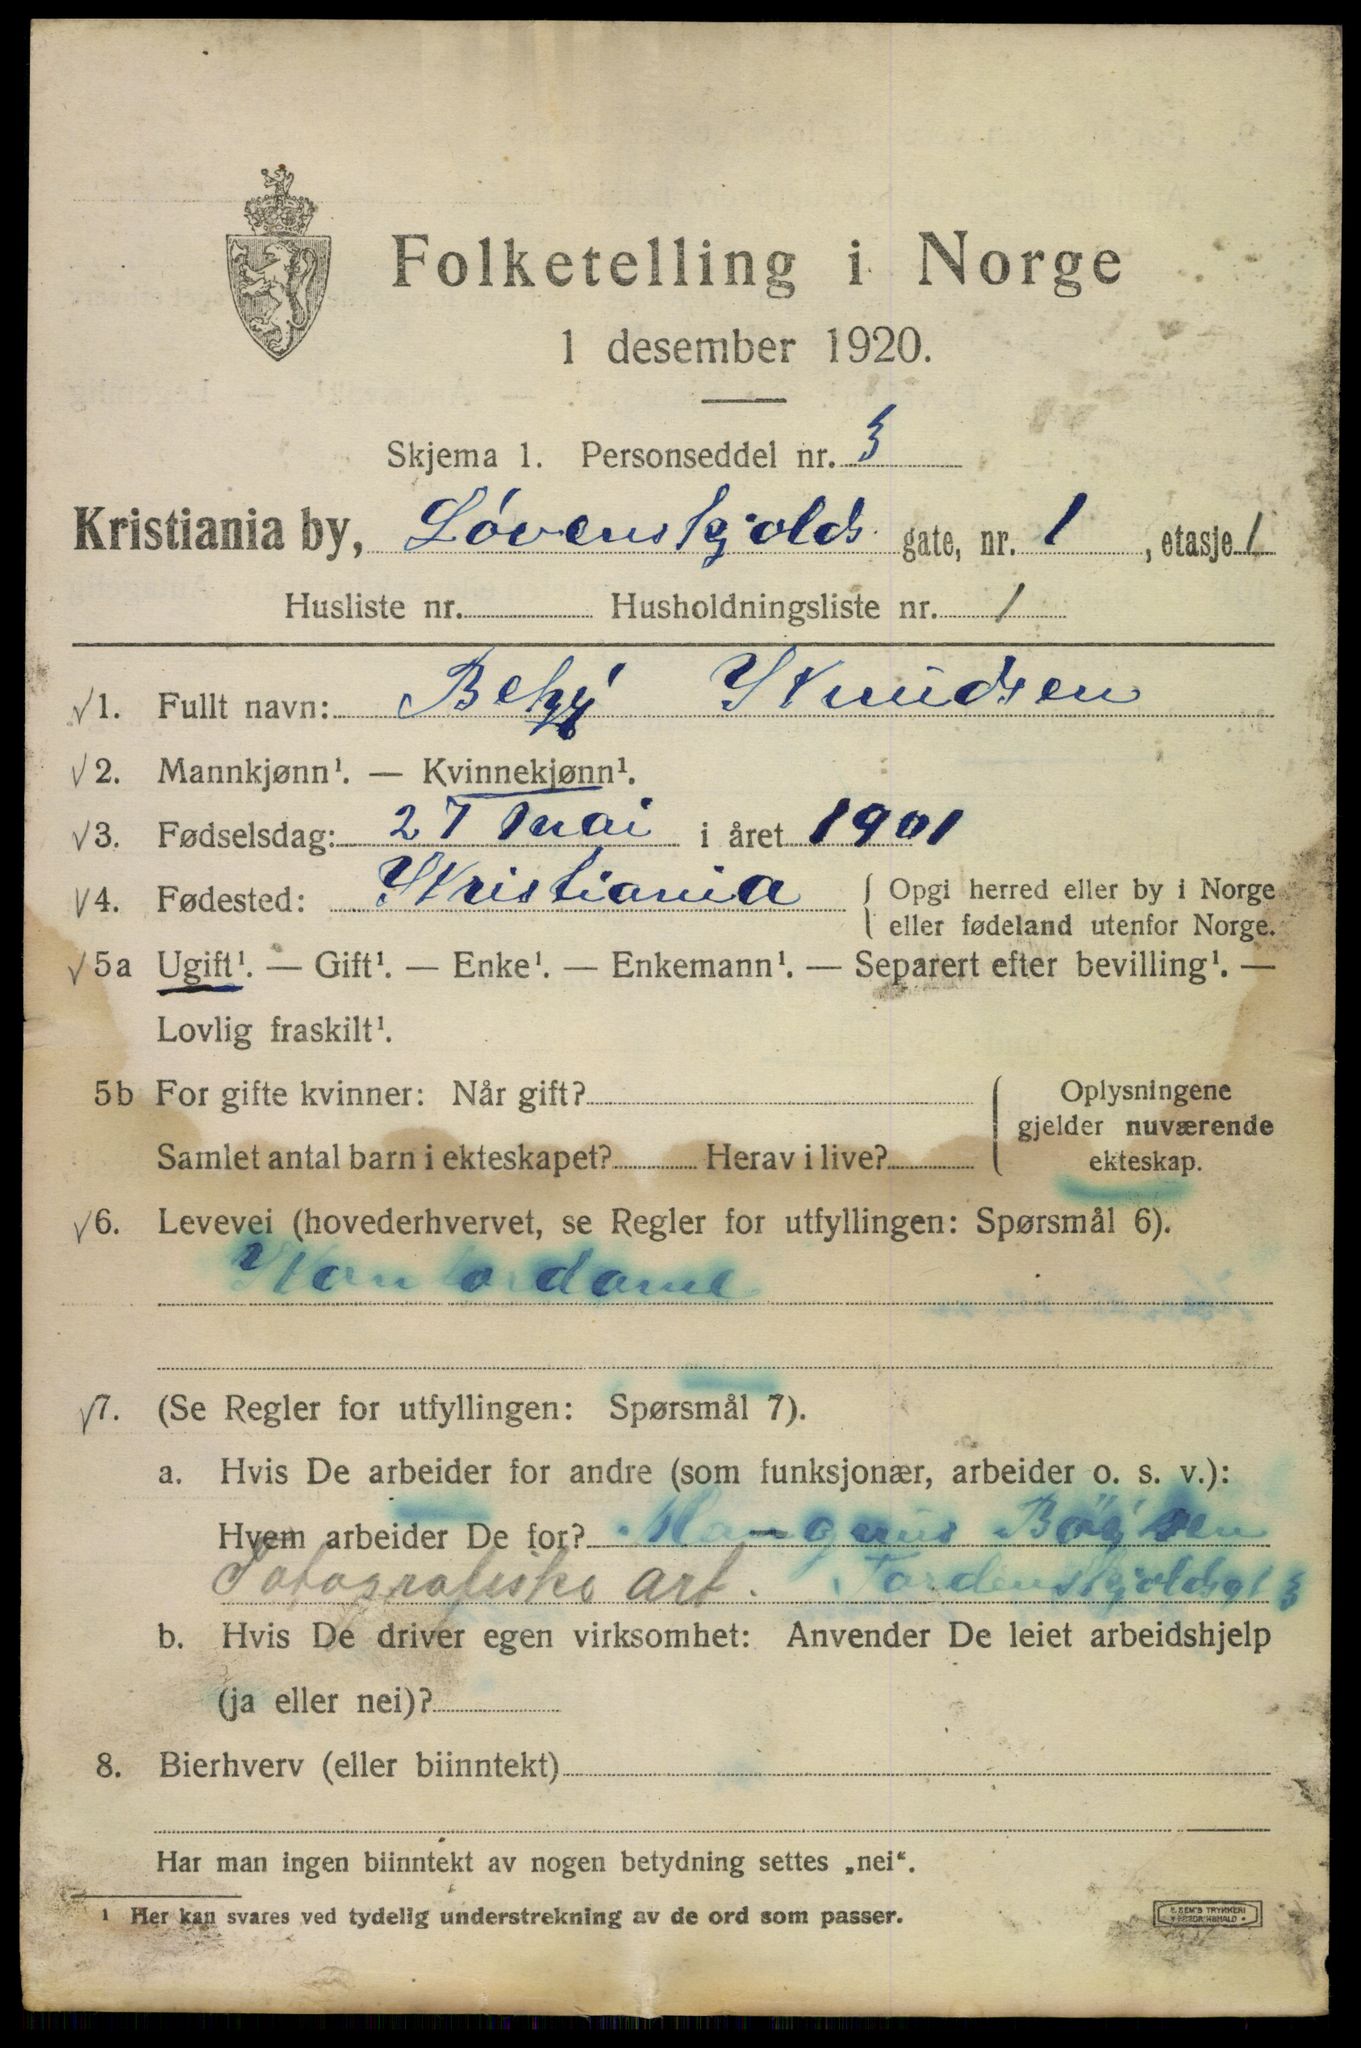 Folketelling i Norge
1 desember 1920.
Skjema 1. Personseddel nr. 3
Kristiania by, Løvenskjolds gate, nr. 1, etasje 1
Husliste nr. Husholdningsliste nr. 1
√1. Fullt navn: Knudsen
√2. Mannkjønn¹. — Kvinnekjønn¹.
√3. Fødselsdag: 27 mai i året 1901
√4. Fødested: Kristiania { Opgi herred eller by i Norge
eller fødeland utenfor Norge.
√5a Ugift¹. — Gift¹. — Enke¹. — Enkemann¹. — Separert efter bevilling¹. —
Lovlig fraskilt¹.
5b For gifte kvinner: Når gift? Oplysningene
gjelder nuværende
Samlet antal barn i ekteskapet? Herav i live? ekteskap.
√6. Levevei (hovederhvervet, se Regler for utfyllingen: Spørsmål 6).
Kontordame
√7. (Se Regler for utfyllingen: Spørsmål 7).
a. Hvis De arbeider for andre (som funksjonær, arbeider o. s. v.):
Hvem arbeider De for?
Fotografiske art. Tordenskjoldsgt 3
b. Hvis De driver egen virksomhet: Anvender De leiet arbeidshjelp
(ja eller nei)?
8. Bierhverv (eller biinntekt)
Har man ingen biinntekt av nogen betydning settes „nei“.
¹ Her kan svares ved tydelig understrekning av de ord som passer.